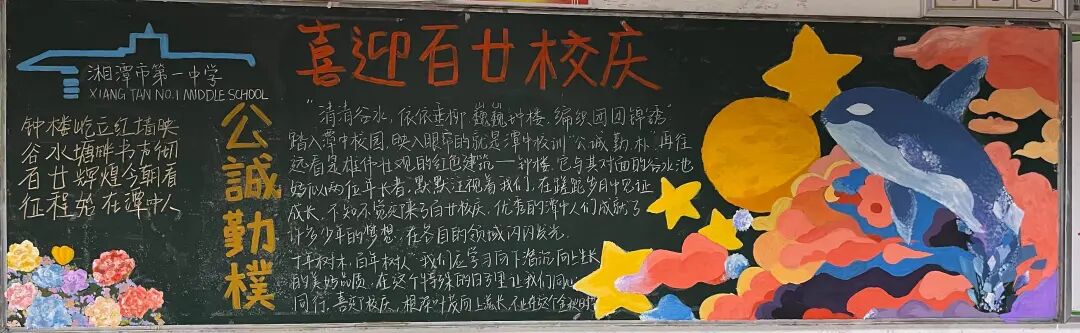 喜迎百廿校庆
湘潭市第一中学
XIANG TAN NO.1 MIDDLE SCHOOL
钟楼屹立红墙映
谷水塘畔书声彻
百廿辉煌今朝看
征程始在潭中人
公誠勤樸
"清清谷水,依依垂柳,巍巍钟楼,编织团团锦绣"
踏入潭中校园,映入眼帘的就是潭中校训"公诚勤朴"再往
远看是雄伟壮观的红色建筑——钟楼,它与其对面的谷水池
好似两位年长者,默默注视着我们,在蹉跎岁月中见证
成长,不知不觉迎来了百廿校庆,优秀的潭中人们成就了
许多少年的梦想,在各自的领域闪闪发光.
"十年树木,百年树人"我们应学习向下潜沉向上生长
的美好品质,在这个特殊的日子里让我们同心
同行,喜迎校庆,根深叶茂向上生长